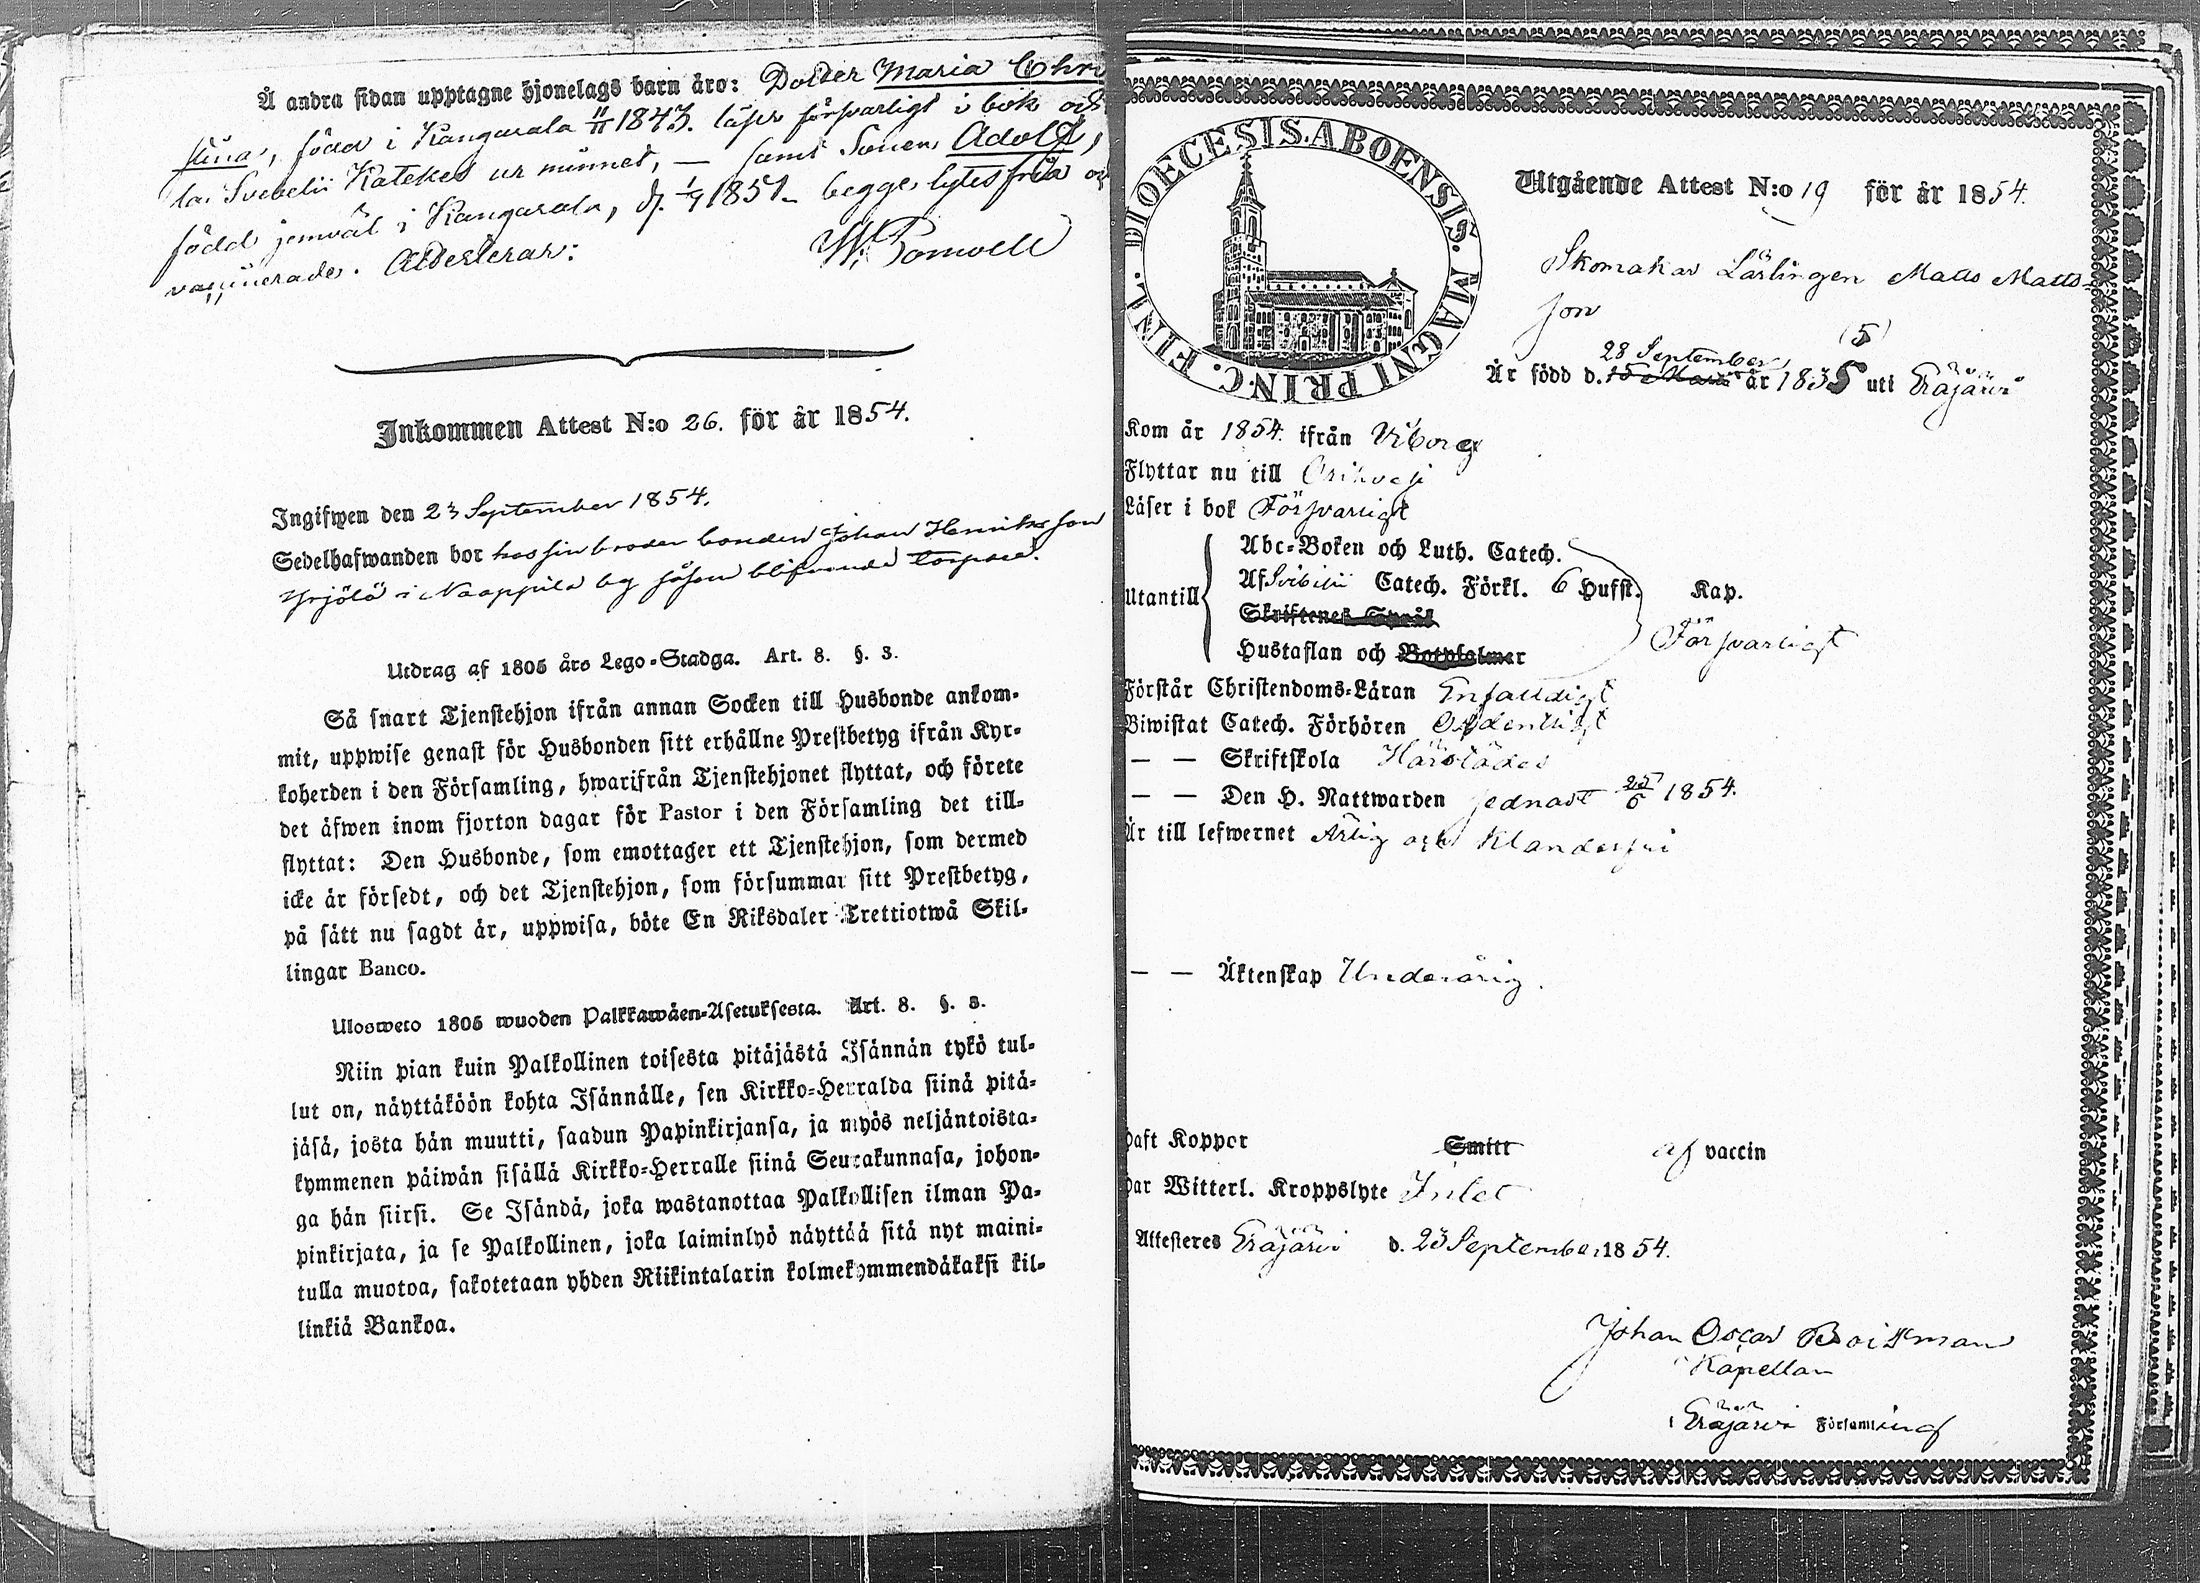 Å andra sidan upptagne hjonelags barn äro: Dotter Maria Chri
stina, född i Kangasala 11/11 1843. läser försvarligt i bok och
Svebelii Katekes ur minnet, — samt Sonen Adolf,
född jemväl i Kangasala, d. 1/7 1851 begge lytesfria och
vaccinerade. Attesterar:
Inkommen Attest N:o 26. för år 1854.
Ingifwen den 23 September 1854.
Sedelhafwanden bor hos sin broder bonden Johan Henriksson
Yrjölä i Naappila by såsom blifvande torpare.
Utdrag af 1805 års Lego-Stadga. Art. 8. §. 3.
Så snart Tjenstehjon ifrån annan Socken till Husbonde ankom-
mit, uppwise genast för Husbonden sitt erhållne Prestbetyg ifrån Kyr-
koherden i den Församling, hwarifrån Tjenstehjonet flyttat, och förete
det äfwen inom fjorton dagar för Pastor i den Församling det till-
flyttat: Den Husbonde, som emottager ett Tjenstehjon, som dermed
icke är försedt, och det Tjenstehjon, som försummar sitt Prestbetyg,
på sätt nu sagdt är, uppwisa, böte En Riksdaler Trettiotwå Skil-
lingar Banco.
Ulosweto 1805 wuoden Palkkawäen-Asetuksesta. Art. 8. §. 3.
Niin pian kuin Palkollinen toisesta pitäjästä Isännän tykö tul-
lut on, näyttäköön kohta Isännälle, sen Kirkko-Herralda siinä pitä-
jäsä, josta hän muutti, saadun Papinkirjansa, ja myös neljäntoista-
kymmenen päiwän sisällä Kirkko-Herralle siinä Seurakunnasa, johon-
ga hän siirsi. Se Isändä, joka wastanottaa Palkollisen ilman Pa-
pinkirjata, ja se Palkollinen, joka laiminlyö näyttää sitä nyt maini-
tulla muotoa, sakotetaan yhden Riikintalarin kolmekymmendäkaksi kil-
linkiä Bankoa.
DIOECESIS. ABOENSIS. MAGNI PRIN-C. FINL.
Utgående Attest N:o 19 för år 1854.
Skomakar Lärlingen Matts Matts-
son
28 September (5)
Är född d. 15 Mars år 1835 uti Eräjärvi
Kom år 1854. ifrån Viborg
Flyttar nu till Orihvesi
Läser i bok Försvarligt
Utantill
Abc-Boken och Luth. Catech.
Af Svibilii Catech. Förkl. 6 Hufst. Kap.
Skriftenes Språk
Hustaflan och Botpsalmer Försvarligt
Förstår Christendoms-Läran Enfaldigt
Biwistat Catech. Förhören Ordentligt
— — Skriftskola Härstädes
— — Den H. Nattwarden sednast 25/6 1854.
Är till lefwernet Ärlig och Klanderfri
— — Äktenskap Underårig.
Haft Koppor Smitt af vaccin
Har Witterl. Kroppslyte Intet
Attesteres Eräjärvi d. 23 September 1854.
Johan Oscar Boisman
Kapellan
i Eräjärvi Församling